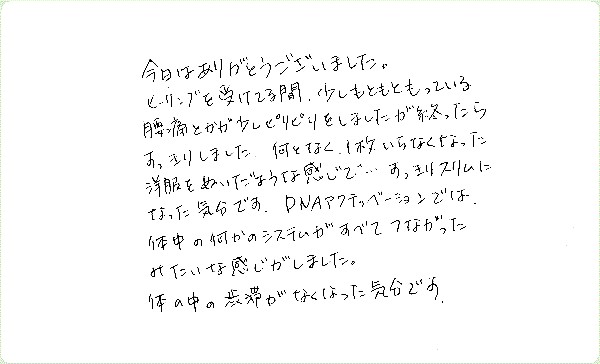 今日はありがとうございました。
ヒーリングを受けてる間、少しもともともっている
腰痛とかが少しピリピリをしましたが終ったら
すっきりしました 何となく、1枚いらなくなった
洋服をぬいだような感じで… すっきりスリムに
なった気分です。DNAアクティベーションでは、
体中の何かのシステムがすべてつながった
みたいな感じがしました。
体の中の渋滞がなくなった気分です。